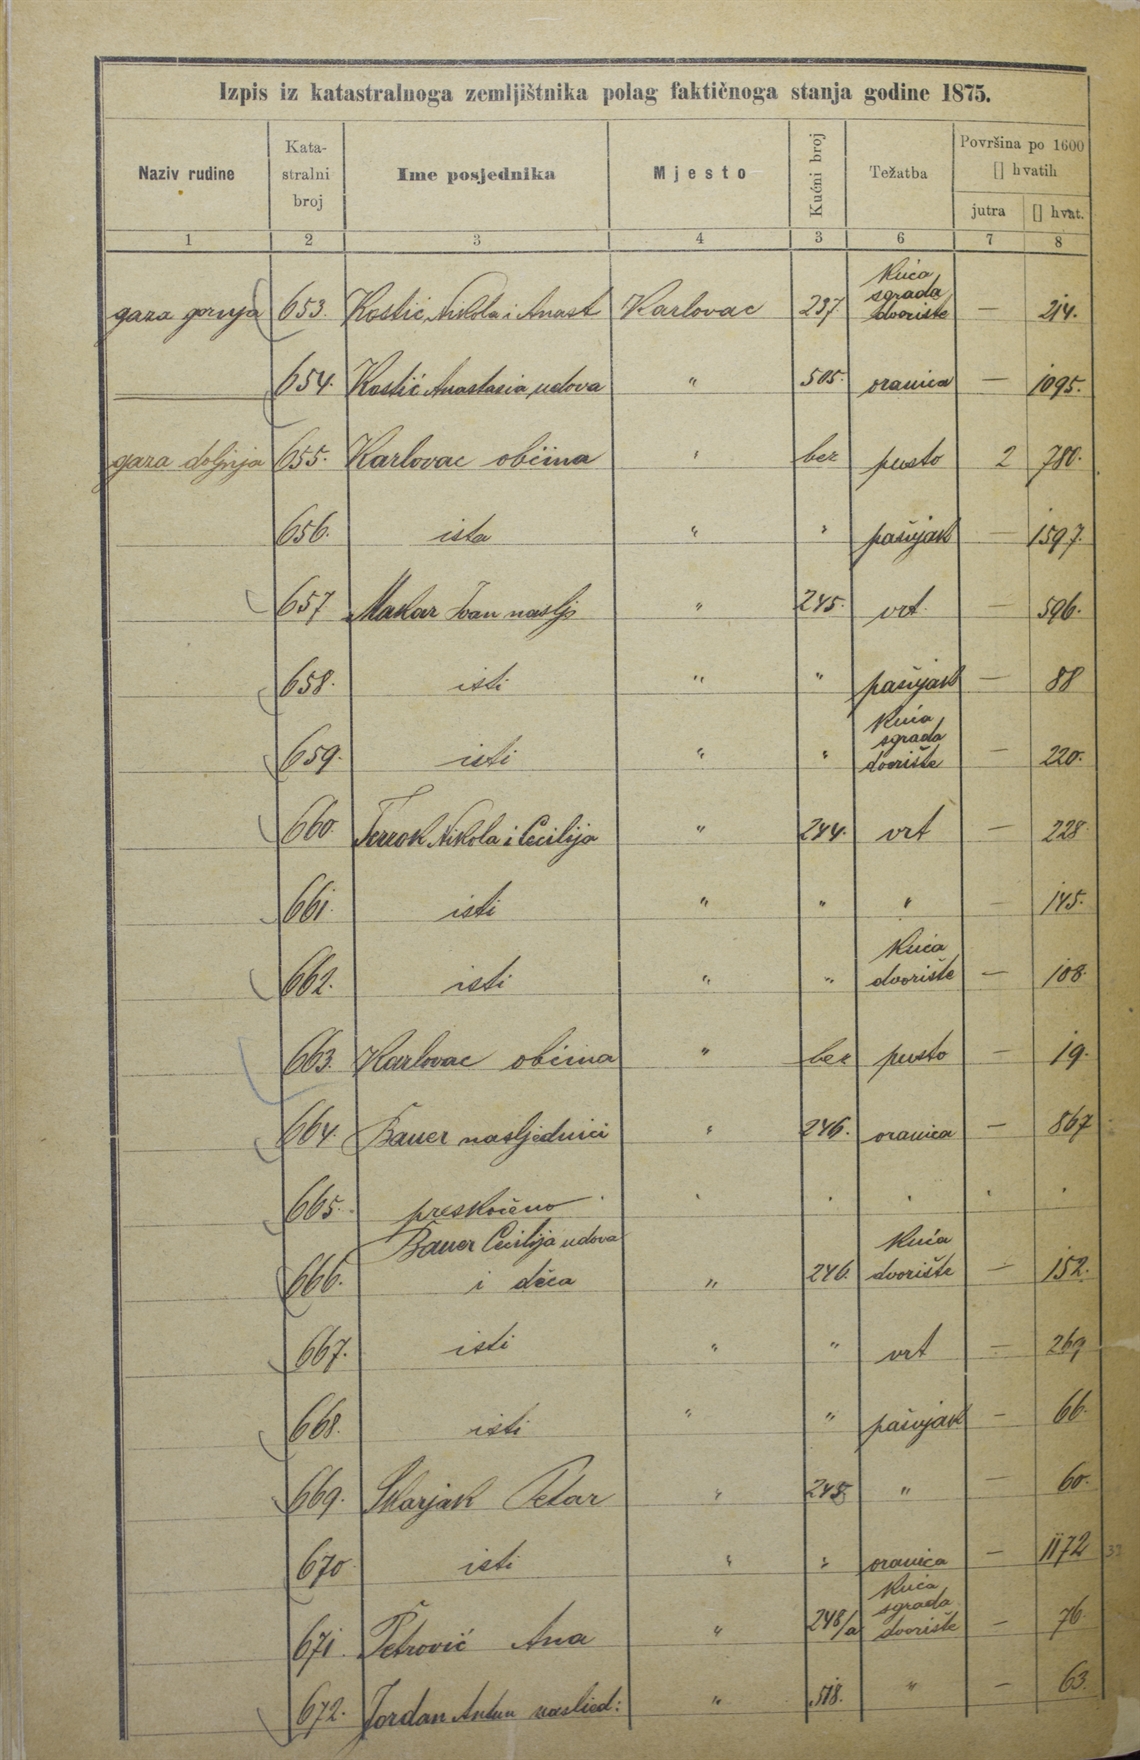 Izpis iz katastralnoga zemljištnika polag faktičnoga stanja godine 1875.
Naziv rudine Kata-stralni broj Ime posjednika Mjesto Kućni broj Težatba Površina po 1600 [] hvatih
jutra [] hvat.
1 2 3 4 3 6 7 8
gaza gornja 653. Kostić Nikola i Anast Karlovac 237 kuća sgrada dvorište — 214.
654. Kostić Anastasia udova " 505. oranica — 1095.
gaza doljnja 655. Karlovac občina " bez pusto 2 780.
656. ista " " pašnjak — 1597.
657 Makar Ivan naslj. " 245. vrt — 596.
658. isti " " pašnjak — 88
659. isti " " kuća sgrada dvorište — 220.
660. Nikola i Cecilija " 244. vrt — 228
661. isti " " " — 145.
662. isti " " kuća dvorište — 108.
663. Karlovac občina " bez pusto — 19.
664. Bauer nasljednici " 246. oranica — 867
665. preskočeno . . . . . .
666. Bauer Cecilija udova i děca " 246. kuća dvorište — 152.
667. isti " " vrt — 269
668. isti " " pašnjak — 66.
669. Petar " " — 60.
670 isti " " oranica — 1172
671. Petrović Ana " 248/a kuća sgrada dvorište — 76
672. Jordan Antun naslied: " 518. " — 63.